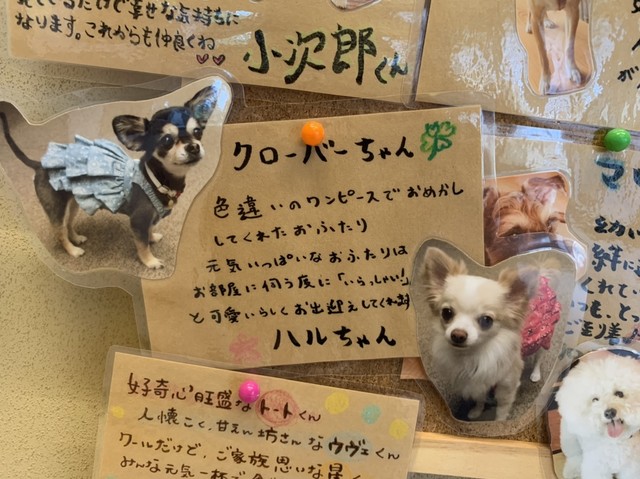 見ているだけで幸せな気持ちに
なります。これからも仲良くね
小次郎くん
クローバーちゃん
色違いのワンピースでおめかし
してくれたおふたり
元気いっぱいなおふたりは
お部屋に伺う度に「いらっしゃい!」
と可愛いらしくお出迎えしてくれ
ハルちゃん
好奇心旺盛なトートくん
人懐こく、甘えん坊さんなウヴェくん
クールだけど、ご家族思いな
みんな元気一杯で